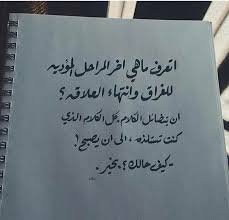 اتعرف ماهي اخر المراحل المؤديه
للفراق وانتهاء العلاقه ؟
ان يتضائل الكلام بكل الكلام الذي
كنت تستلذه ، الى ان يصبح !
- كيف حالك ؟ بخير .